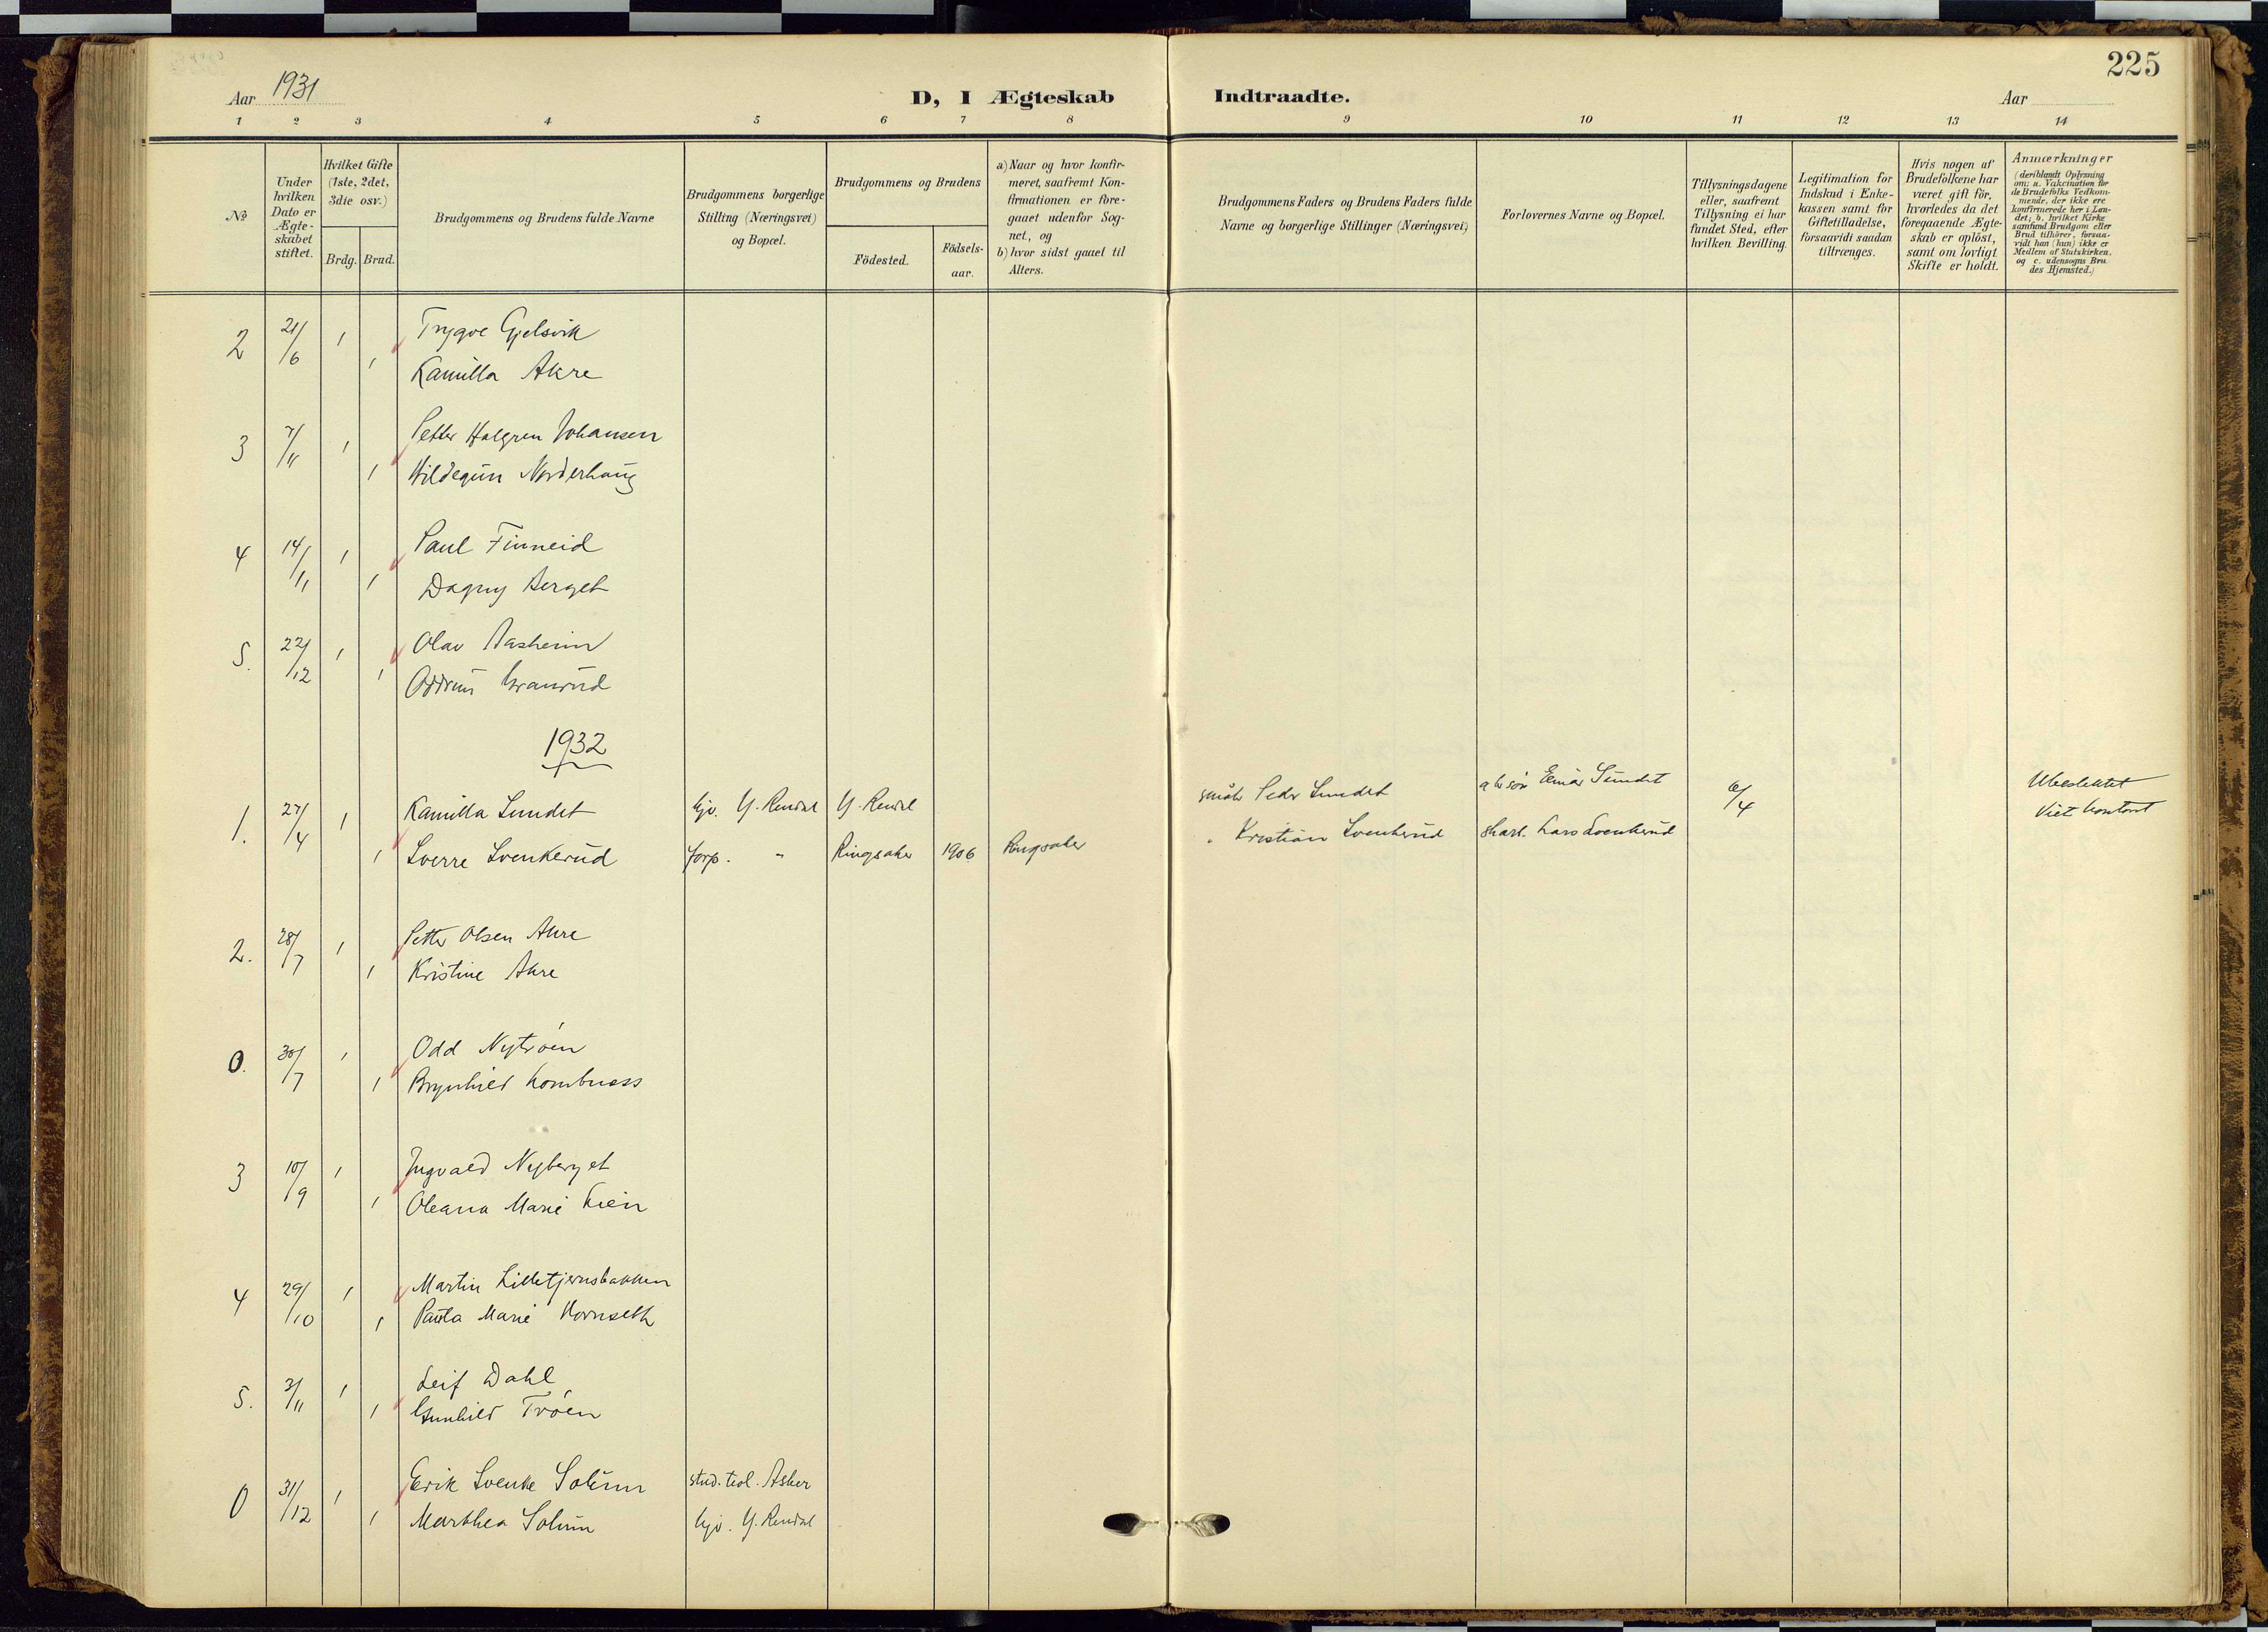 225
Aar 1931
D, I Ægteskab Indtraadte.
Aar
1 2 3 4 5 6 7 8 9 10 11 12 13 14
№
Under
hvilken
Dato er
Ægte-
skabet
stiftet.
Hvilket Gifte
(1ste, 2det,
3die osv.)
Brdg. Brud.
Brudgommens og Brudens fulde Navne
Brudgommens borgerlige
Stilling (Næringsvei)
og Bopæl.
Brudgommens og Brudens
Födested.
Födsels-
aar.
a) Naar og hvor konfir-
meret, saafremt Kon-
firmationen er fore-
gaaet udenfor Sog-
net, og
b) hvor sidst gaaet til
Alters.
Brudgommens Faders og Brudens Faders fulde
Navne og borgerlige Stillinger (Næringsvei)
Forlovernes Navne og Bopæl.
Tillysningsdagene
eller, saafremt
Tillysning ei har
fundet Sted, efter
hvilken Bevilling.
Legitimation for
Indskud i Enke-
kassen samt for
Giftetilladelse,
forsaavidt saadan
tiltrænges.
Hvis nogen af
Brudefolkene har
været gift för,
hvorledes da det
foregaaende Ægte-
skab er oplöst,
samt om lovligt
Skifte er holdt.
Anmærkninger
(deriblandt Oplysning
om: a. Vakcination for
de Brudefolks Vedkom-
mende, der ikke ere
konfirmerede her i Lan-
det; b. hvilket Kirke
samfund Brudgom eller
Brud tilhörer, forsaa-
vidt han (hun) ikke er
Medlem af Statskirken,
og c. udensogns Bru-
des Hjemsted.)
2 21/6 1 Trygve Gjelsvik
1 Kamilla Akre
3 7/11 1 Petter Halgren Johansen
1 Hildegun Norderhaug
4 14/11 1 Paul Finneid
1 Dagny Berget
5. 22/12 1 Olav Aasheim
1 Oddrun Granrud
1932
1. 27/4 1 Kamilla Sundet hjv. Y. Rendal Y. Rendal småbr Peder Sundet gbr sön Einar Sundet 6/4 Ubeslektet
1 Sverre Svenkerud forp. " Ringsaker 1906 Ringsaker " Kristian Svenkerud skarl. Lars Svenkerud Viet kontoret
2. 28/7 1 Petter Olsen Akre
1 Kristine Akre
0. 30/7 1 Odd Nytröen
1 Brynhild Hornbness
3 10/9 1 Ingvald Nyberget
1 Oleana Marie Lien
4 29/10 1 Martin Lilletjernsbakken
1 Paula Marie Hornseth
5. 3/11 1 Leif Dahl
1 Gunhild Tröen
0 31/12 1 Erik Svenke Solum stud. teol. Asker
1 Marthea Solum hjv. Y. Rendal